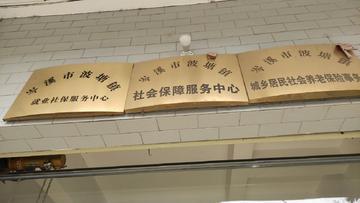 岑溪市波塘镇
就业社保服务中心
岑溪市波塘镇
社会保障服务中心
岑溪市波塘镇
城乡居民社会养老保险事务